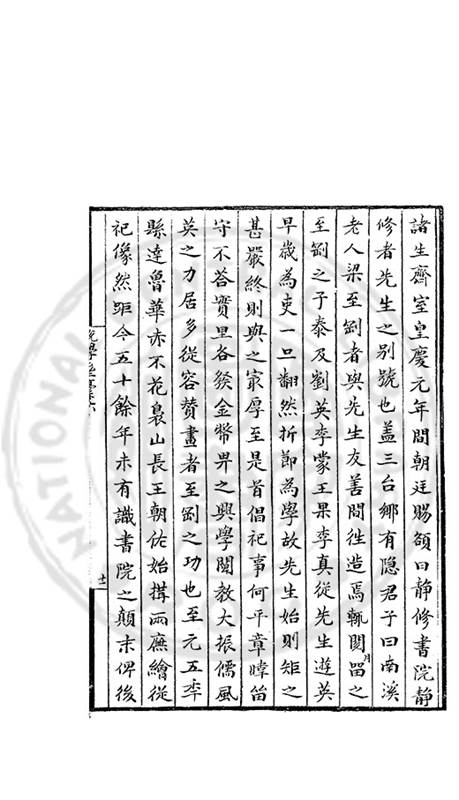 諸生齋室皇慶元年間朝廷賜額曰靜修書院靜
修者先生之別號也蓋三台鄉有隱君子曰南溪
老人梁至剛者與先生友善間往造焉輒閱月留之
至剛之子泰及劉英李蒙王果李真從先生遊英
早歲為吏一旦翻然折節為學故先生始則矩之
甚嚴終則與之最厚至是首倡祀事何平章暐笛
守不荅實里各發金幣畀之興學闡教大振儒風
英之力居多從容贊畫者至剛之功也至元五年
縣達魯華赤不花裊山長王朝佐始搆兩廡繪從
祀像然距今五十餘年未有識書院之顛末俾後
十二
NATIONAL